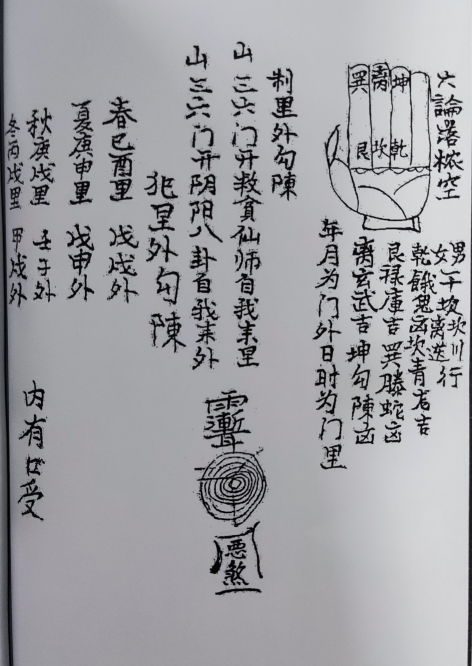 六論落枨空
巽離坤
艮坎乾
男干坎川行
女 离逆行
乾餓鬼凶坎青龙吉
艮禄庫吉巽騰蛇凶
离玄武吉坤勾陳凶
年月为门外日时为门里
制里外勾陳
山三六门开救貧仙师自我来里
山三六门开阴阳八卦自我来外
犯里外勾陳
春巳酉里 戊戌外
夏庚申里 戊申外
秋庚戌里 壬子外
冬丙戌里 甲戌外
惡煞
内有口受